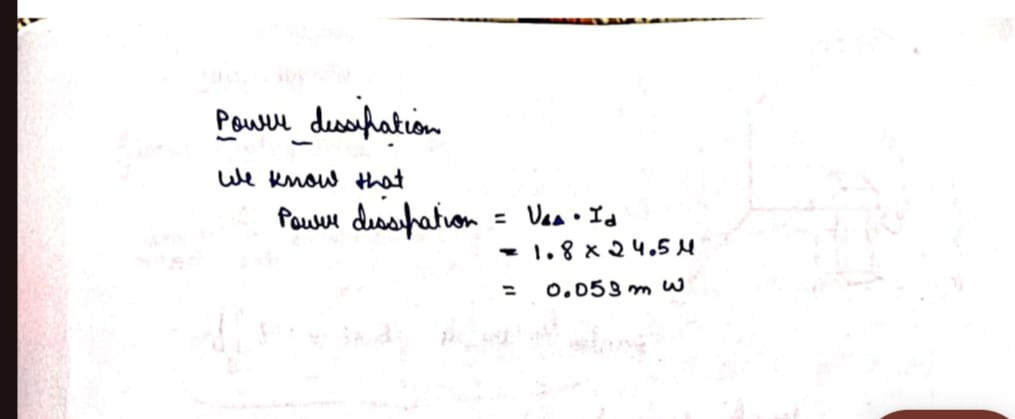 Power dissipation
We know that
Power dissipation = Vdd . Id
= 1.8 x 24.5 μ
= 0.053 m W